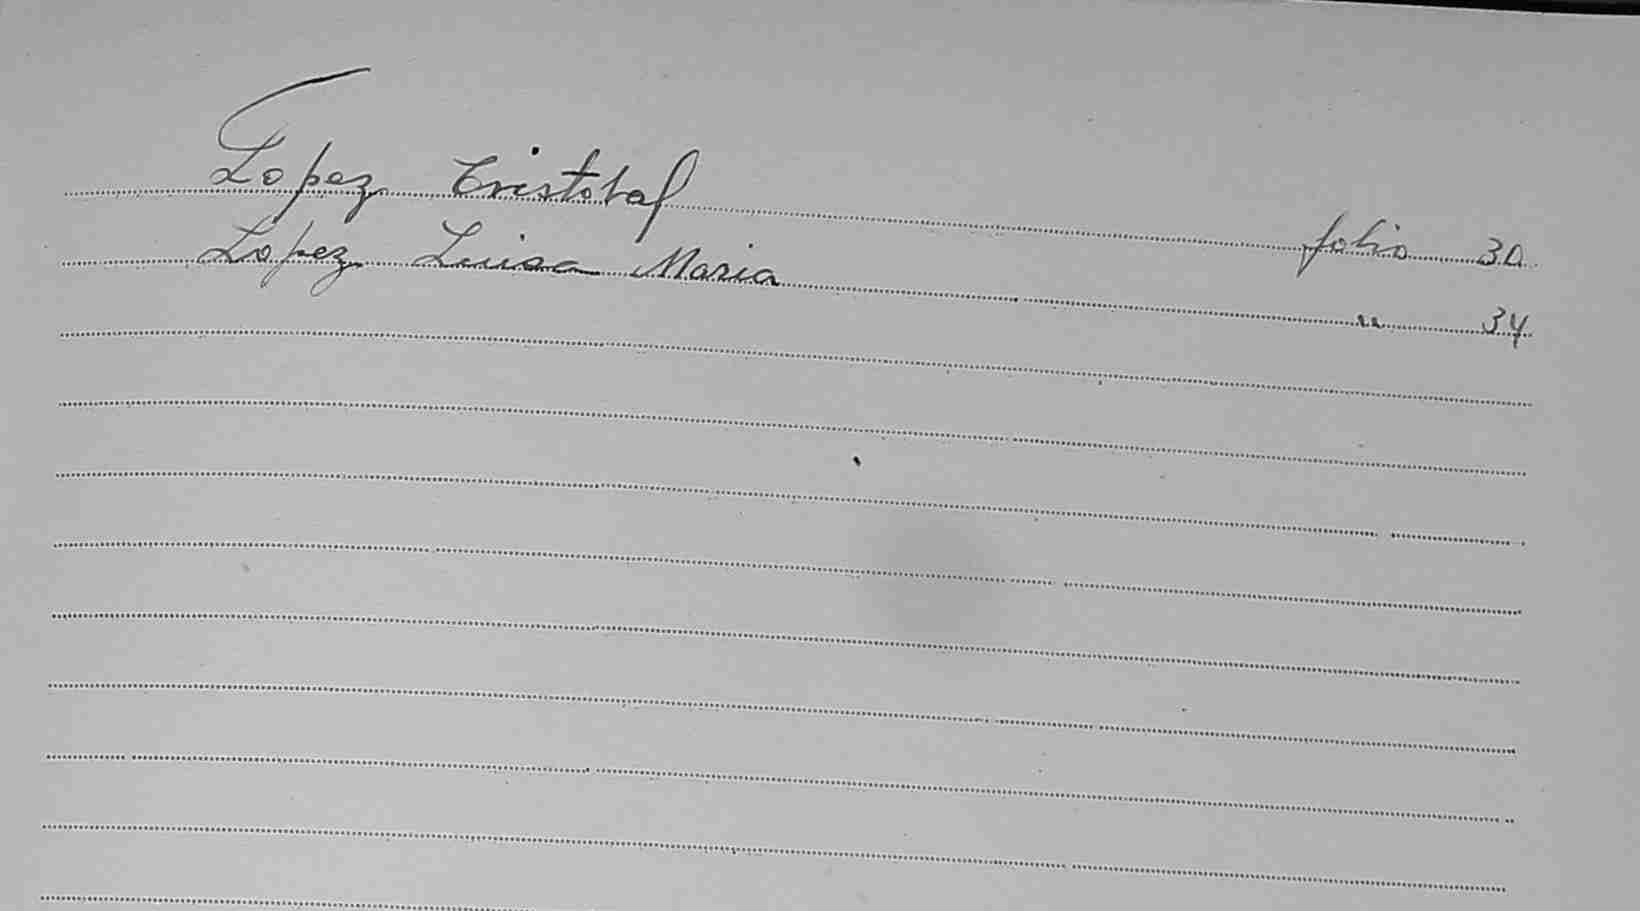 Lopez Cristobal folio 30
Lopez Luisa Maria " 34